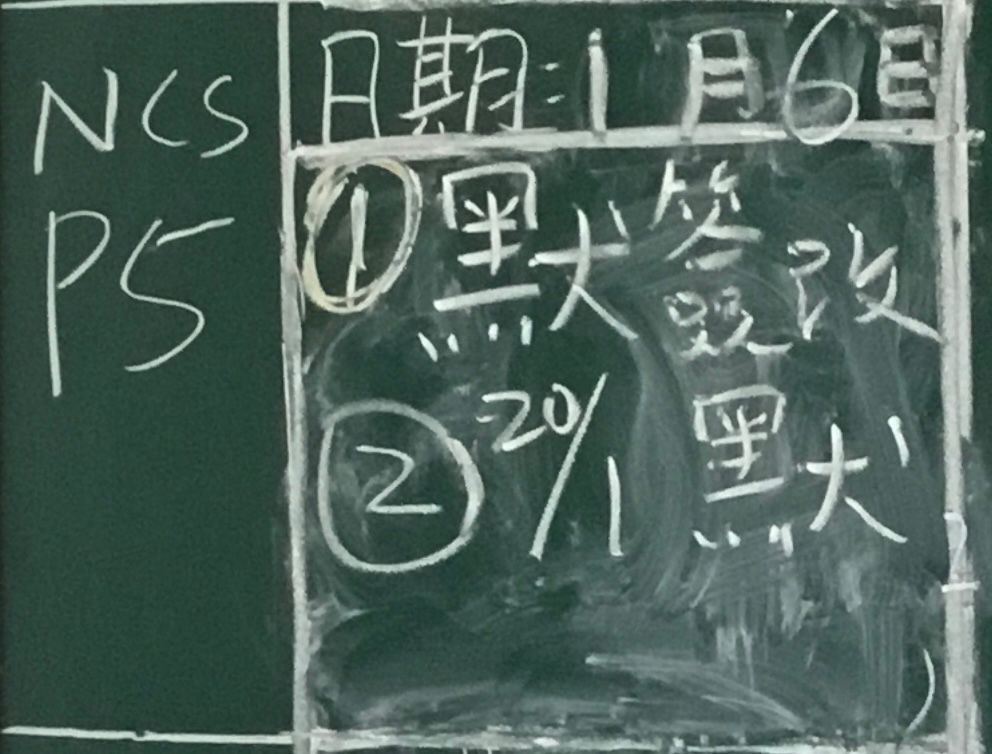 NCS
P5
日期:1月6日
①默簽改
②20/1 默